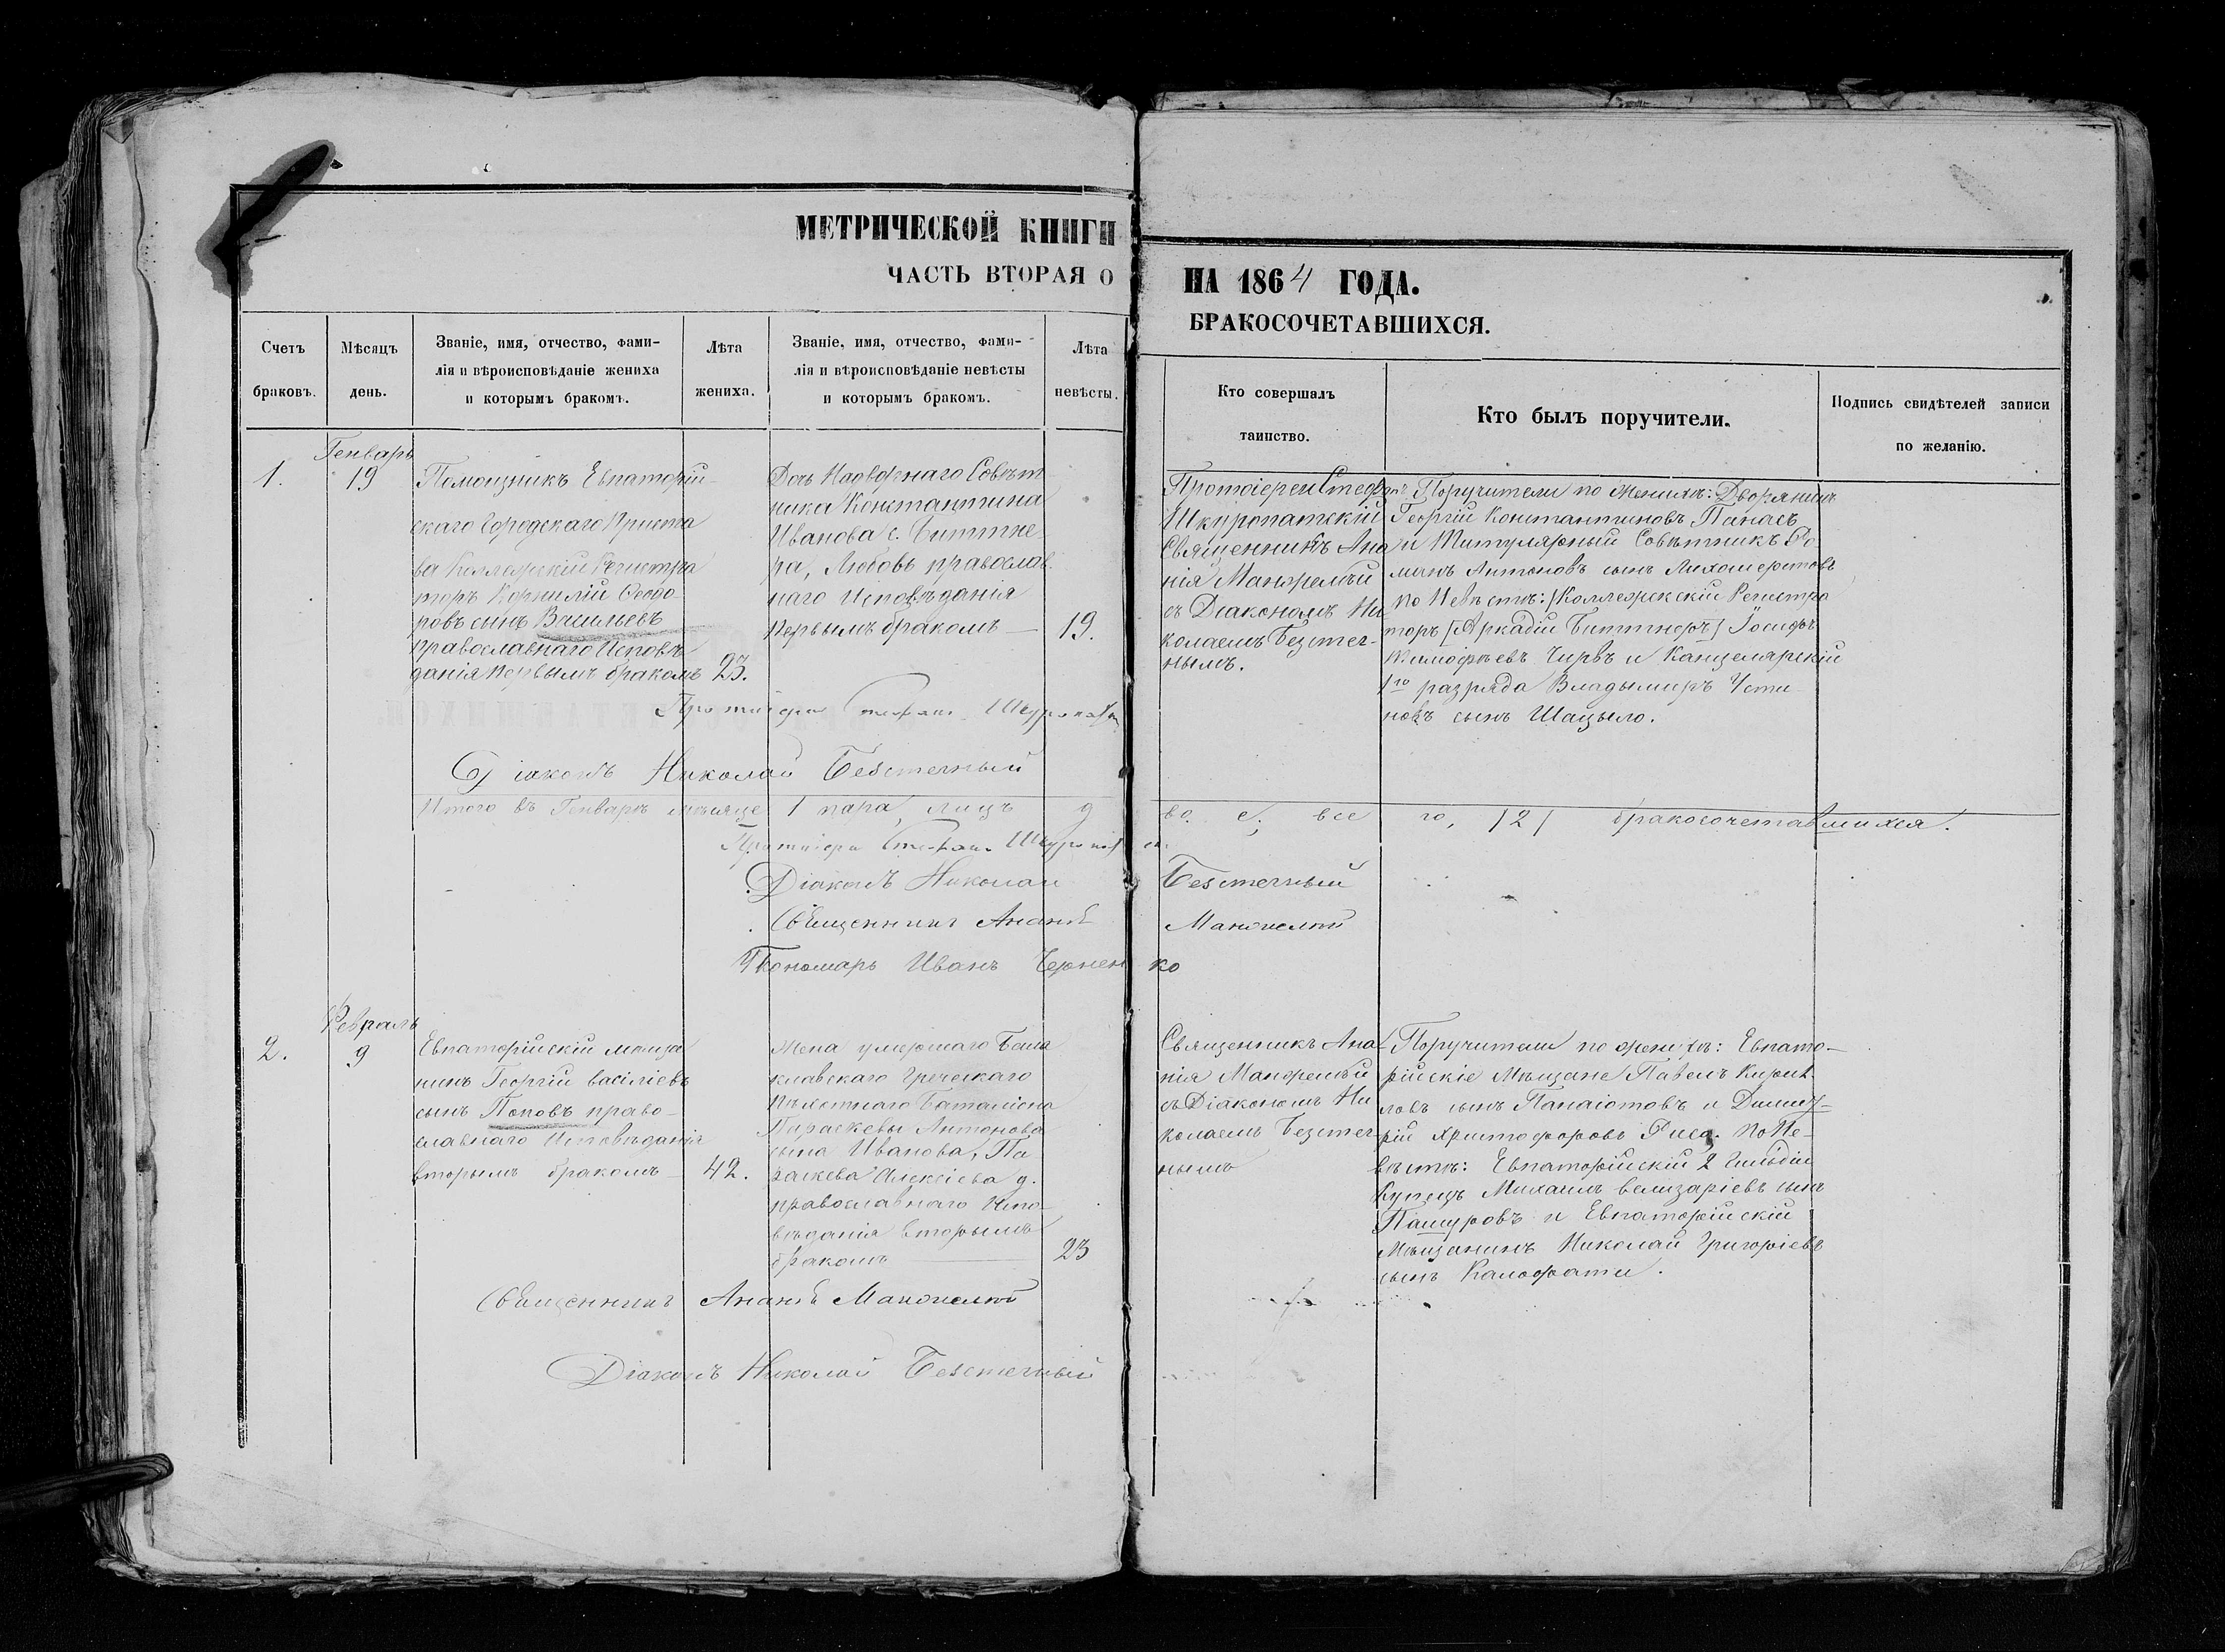 МЕТРИЧЕСКОЙ КНИГИ
ЧАСТЬ ВТОРАЯ О
НА 1864 ГОДА.
БРАКОСОЧЕТАВШИХСЯ.
Счетъ
браковъ.
Мѣсяцъ
день.
Званіе, имя, отчество, фами-
лія и вѣроисповѣданіе жениха
и которымъ бракомъ.
Лѣта
жениха.
Званіе, имя, отчество, фами-
лія и вѣроисповѣданіе невѣсты
и которымъ бракомъ.
Лѣта
невѣсты.
Кто совершалъ
таинство.
Кто былъ поручители.
Подпись свидѣтелей записи
по желанію.
Генварь
1.
19
Помощникъ Евпаторій-
скаго Городскаго Приста
ва Коллежскій Регистра
торъ Корнилій Ѳеодо-
ровъ сынъ Васильевъ
православнаго Исповѣ
данія первымъ бракомъ
23.
Дочь Надворнаго Совѣт
ника Константина
Иванова с. Биттне-
ра, Любовь православ-
наго Исповѣданія
первымъ бракомъ
19.
Протоіерей Стефанъ
Шкуропатскій
Священникъ Ана
нія
съ Діакономъ Ни
колаемъ Безтеч-
нымъ.
Поручители по женихѣ: Дворянинъ
Георгій Константиновъ Панасъ
и Титулярный Совѣтникъ Ро
манъ Антоновъ сынъ
по Невѣстѣ: [Коллежскій Регистра
торъ [Аркадій Биттнеръ] Іосифъ
Тимофѣевъ Чирвъ и Канцелярскій
1го разряда Владымиръ Усти-
новъ сынъ Шацыло.
Протоіерей Стефанъ Шкуропатск
Діаконъ Николай Безтечный
Итого въ Генварѣ мѣсяцѣ 1 пара, лицъ д
во е; все го, /2/ бракосочетавшихся.
Протоіерей Стефанъ Шкуропатск
Діаконъ Николай Безтечный
Священникъ Ананій
Пономарь Иванъ Чернен ко
Февраль
2.
9
Евпаторійскій мѣща
нинъ Георгій Васіліевъ
сынъ Поповъ право-
славнаго Исповѣданія
вторымъ бракомъ
42.
Жена умершаго Бала
клавскаго Греческаго
Пѣхотнаго Баталіона
Антонова
сына Иванова, Па
раскева Алексіева д.
православнаго Испо-
вѣданія вторымъ
бракомъ
23
Священникъ Ана-
нія
съ Діакономъ Ни
колаемъ Безтеч-
нымъ
Поручители по женихѣ: Евпато-
рійскіе Мѣщане Павелъ Кирил-
ловъ сынъ Панаіотовъ и Димит-
рій Христофоровъ По Не-
вѣстѣ: Евпаторійскій 2 Гильдіи
Купецъ Михаилъ Велизаріевъ сынъ
Пашуровъ и Евпаторійскій
Мѣщанинъ Николай Григоріевъ
сынъ Калафати.
Священникъ Ананій
Діаконъ Николай Безтечный